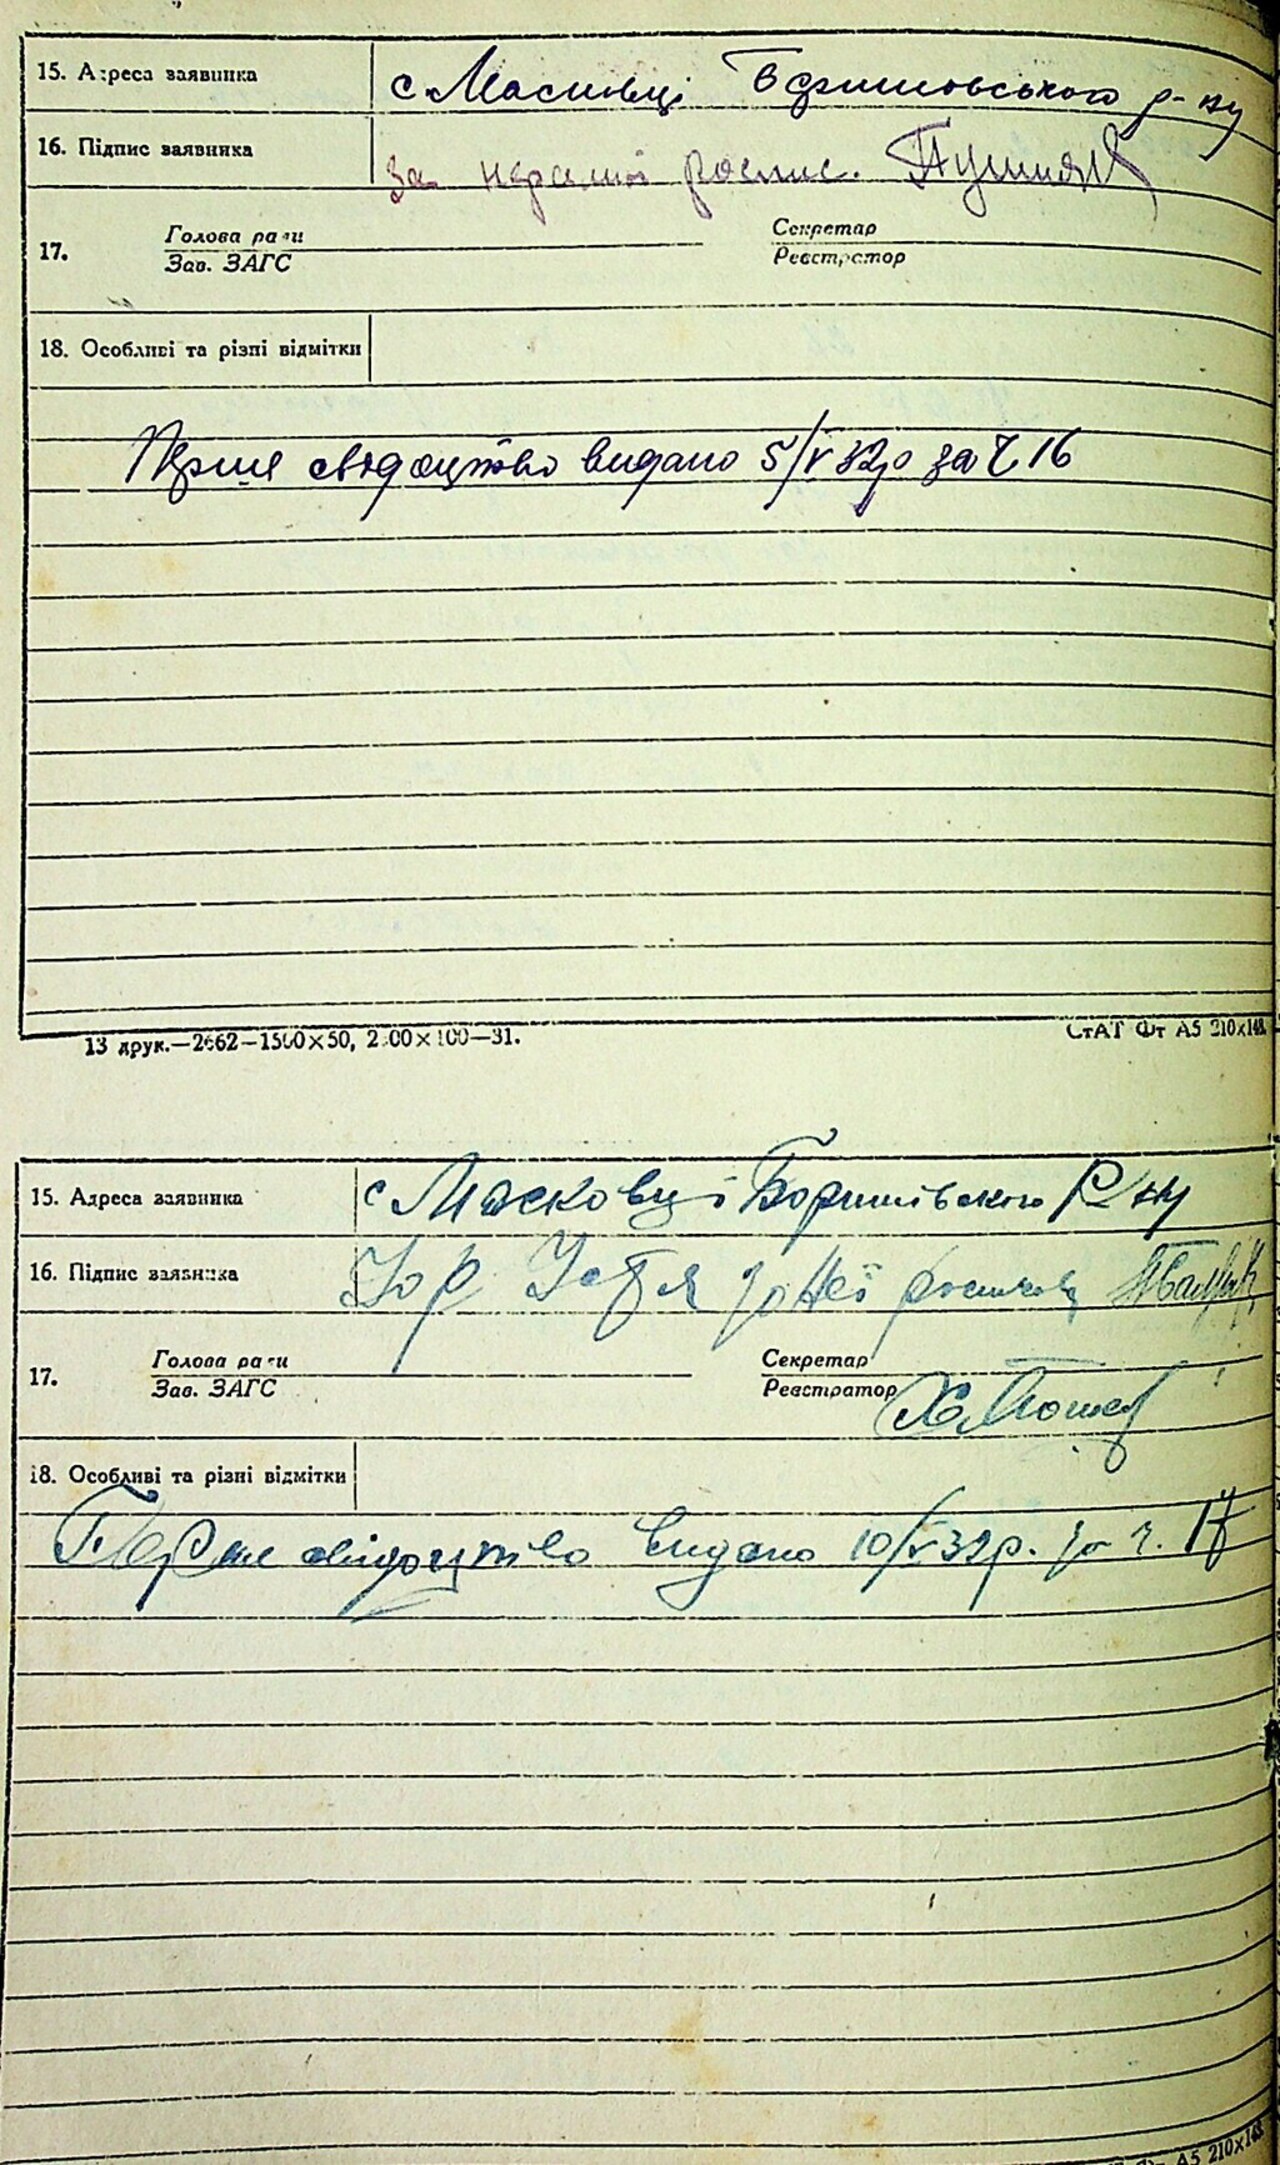 15. Адреса заявника с. Масковці Боришовського р-ну
16. Підпис заявника за неграмот роспис.
17. Голова ради Секретар
Зав. ЗАГС Реєстратор
18. Особливі та різні відмітки
Перше свідоцтво видано 5/V 32р за Ч 16
13 друк.—2662—1500×50, 2 00×100—31.
СтАТ Фт А5 210х148
15. Адреса заявника с Масковці Боришівського Р-ну
16. Підпис заявника Устя за неї
17. Голова ради Секретар
Зав. ЗАГС Реєстратор
18. Особливі та різні відмітки
Перше свідоцтво видано 10/V 32р. за ч. 17
А5 210х148